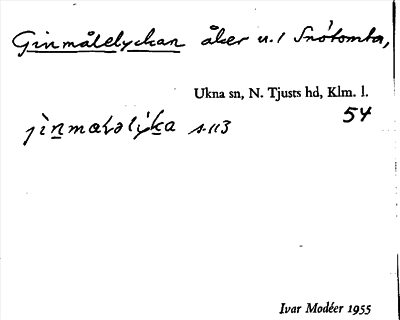 Ginmålelyckan åker u. / Snötomta,
Ukna sn, N. Tjusts hd, Klm. l.
54
s. 113
Ivar Modéer 1955